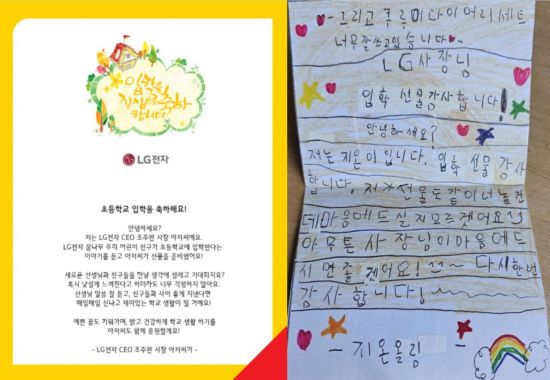 입학을
진심으로 축하
합니다
LG전자
초등학교 입학을 축하해요!
안녕하세요?
저는 LG전자 CEO 조주완 사장 아저씨예요.
LG전자 꿈나무 우리 어린이 친구가 초등학교에 입학한다는
이야기를 듣고 아저씨가 선물을 준비했어요!
새로운 선생님과 친구들을 만날 생각에 설레고 기대되지요?
혹시 낯설게 느껴진다고 하더라도 너무 걱정하지 말아요.
선생님 말씀 잘 듣고, 친구들과 사이 좋게 지낸다면
매일매일 신나고 재미있는 학교 생활이 될 거예요!
예쁜 꿈도 키워가며, 밝고 건강하게 학교 생활 하기를
아저씨도 함께 응원할게요!
- LG전자 CEO 조주완 사장 아저씨가 -
- 그리고 쿠루미다이어리세트
너무잘쓰고있습니다
LG사장님
입학 선물감사합니다!
안녕하세요?
저는 지온이 입니다. 입학 선물 감사
합니다. 저가선물도같이너놀건
데마음에드실지모르겟어요
아무튼 사장님이마음에드
시면좋겠어요! ~ 다시한번
감사합니다!
- 지온올림 -